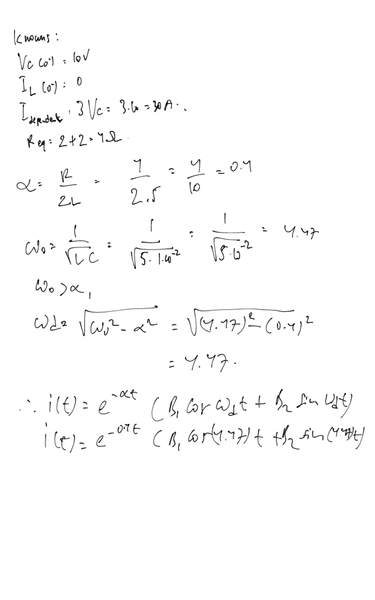 Knowns:
Vc(0⁻) = 10V
I_L(0⁻) = 0
I_dependent = 3Vc = 3·10 = 30A.
Req = 2+2 = 4Ω
α = R/2L = 4/2·5 = 4/10 = 0.4
ω₀ = 1/√LC = 1/√5·1·10⁻² = 1/√5·10⁻² = 4.47
ω₀ > α,
ωd = √ω₀² - α² = √(4.47)² - (0.4)²
= 4.47.
∴ i(t) = e^-αt (B₁ cos ωdt + B₂ sin ωdt)
i(t) = e^-0.4t (B₁ cos(4.47)t + B₂ sin(4.47)t)